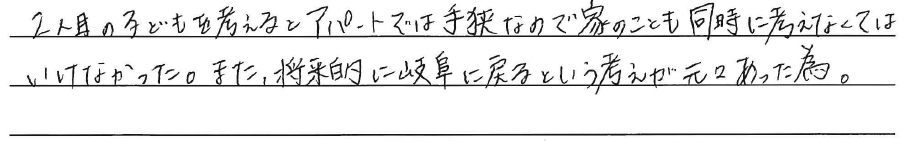 2人目の子どもを考えるとアパートでは手狭なので家のことも同時に考えなくては
いけなかった。また、将来的に岐阜に戻るという考えが元々あった為。